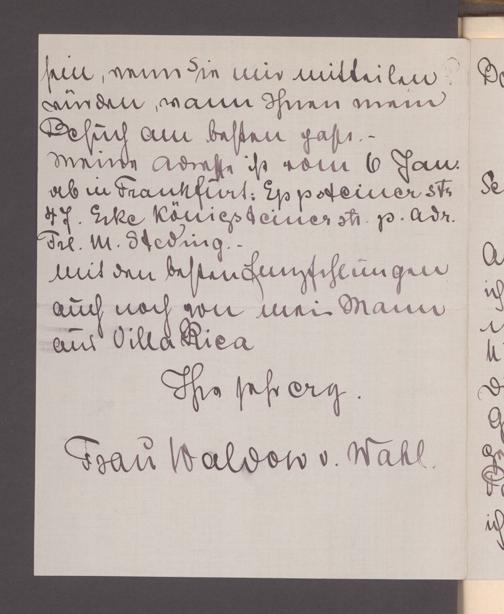 sein, wenn Sie mir mitteilen
würden, wann Ihnen mein
Besuch am besten paßt.-
Meine Adresse ist vom 6 Jan.
ab in Frankfurt: Eppsteinerstr
47. Ecke Königsteinerstr. p. Adr.
Frl. M. Steding.-
Mit den besten Empfehlungen
auch noch von mein Mann
aus Villa Rica
Ihre sehr erg.
Frau Waldow v. Wahl.